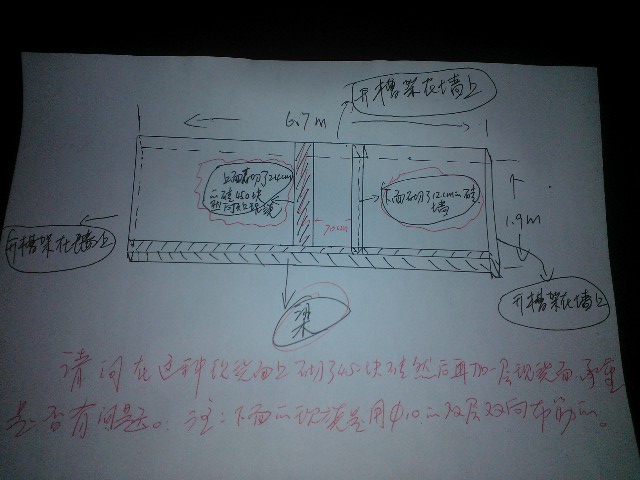 开槽架在墙上
6.7m
上面砌了24cm
的砖450块
下面砌了12cm的砖
墙
70cm
1.9m
开槽架在墙上
开槽架在墙上
梁
请问在这种现浇面上砌了450块砖然后再加一层现浇面,承重
是否有问题。注:下面的现浇是用φ10的双层双向布筋的。